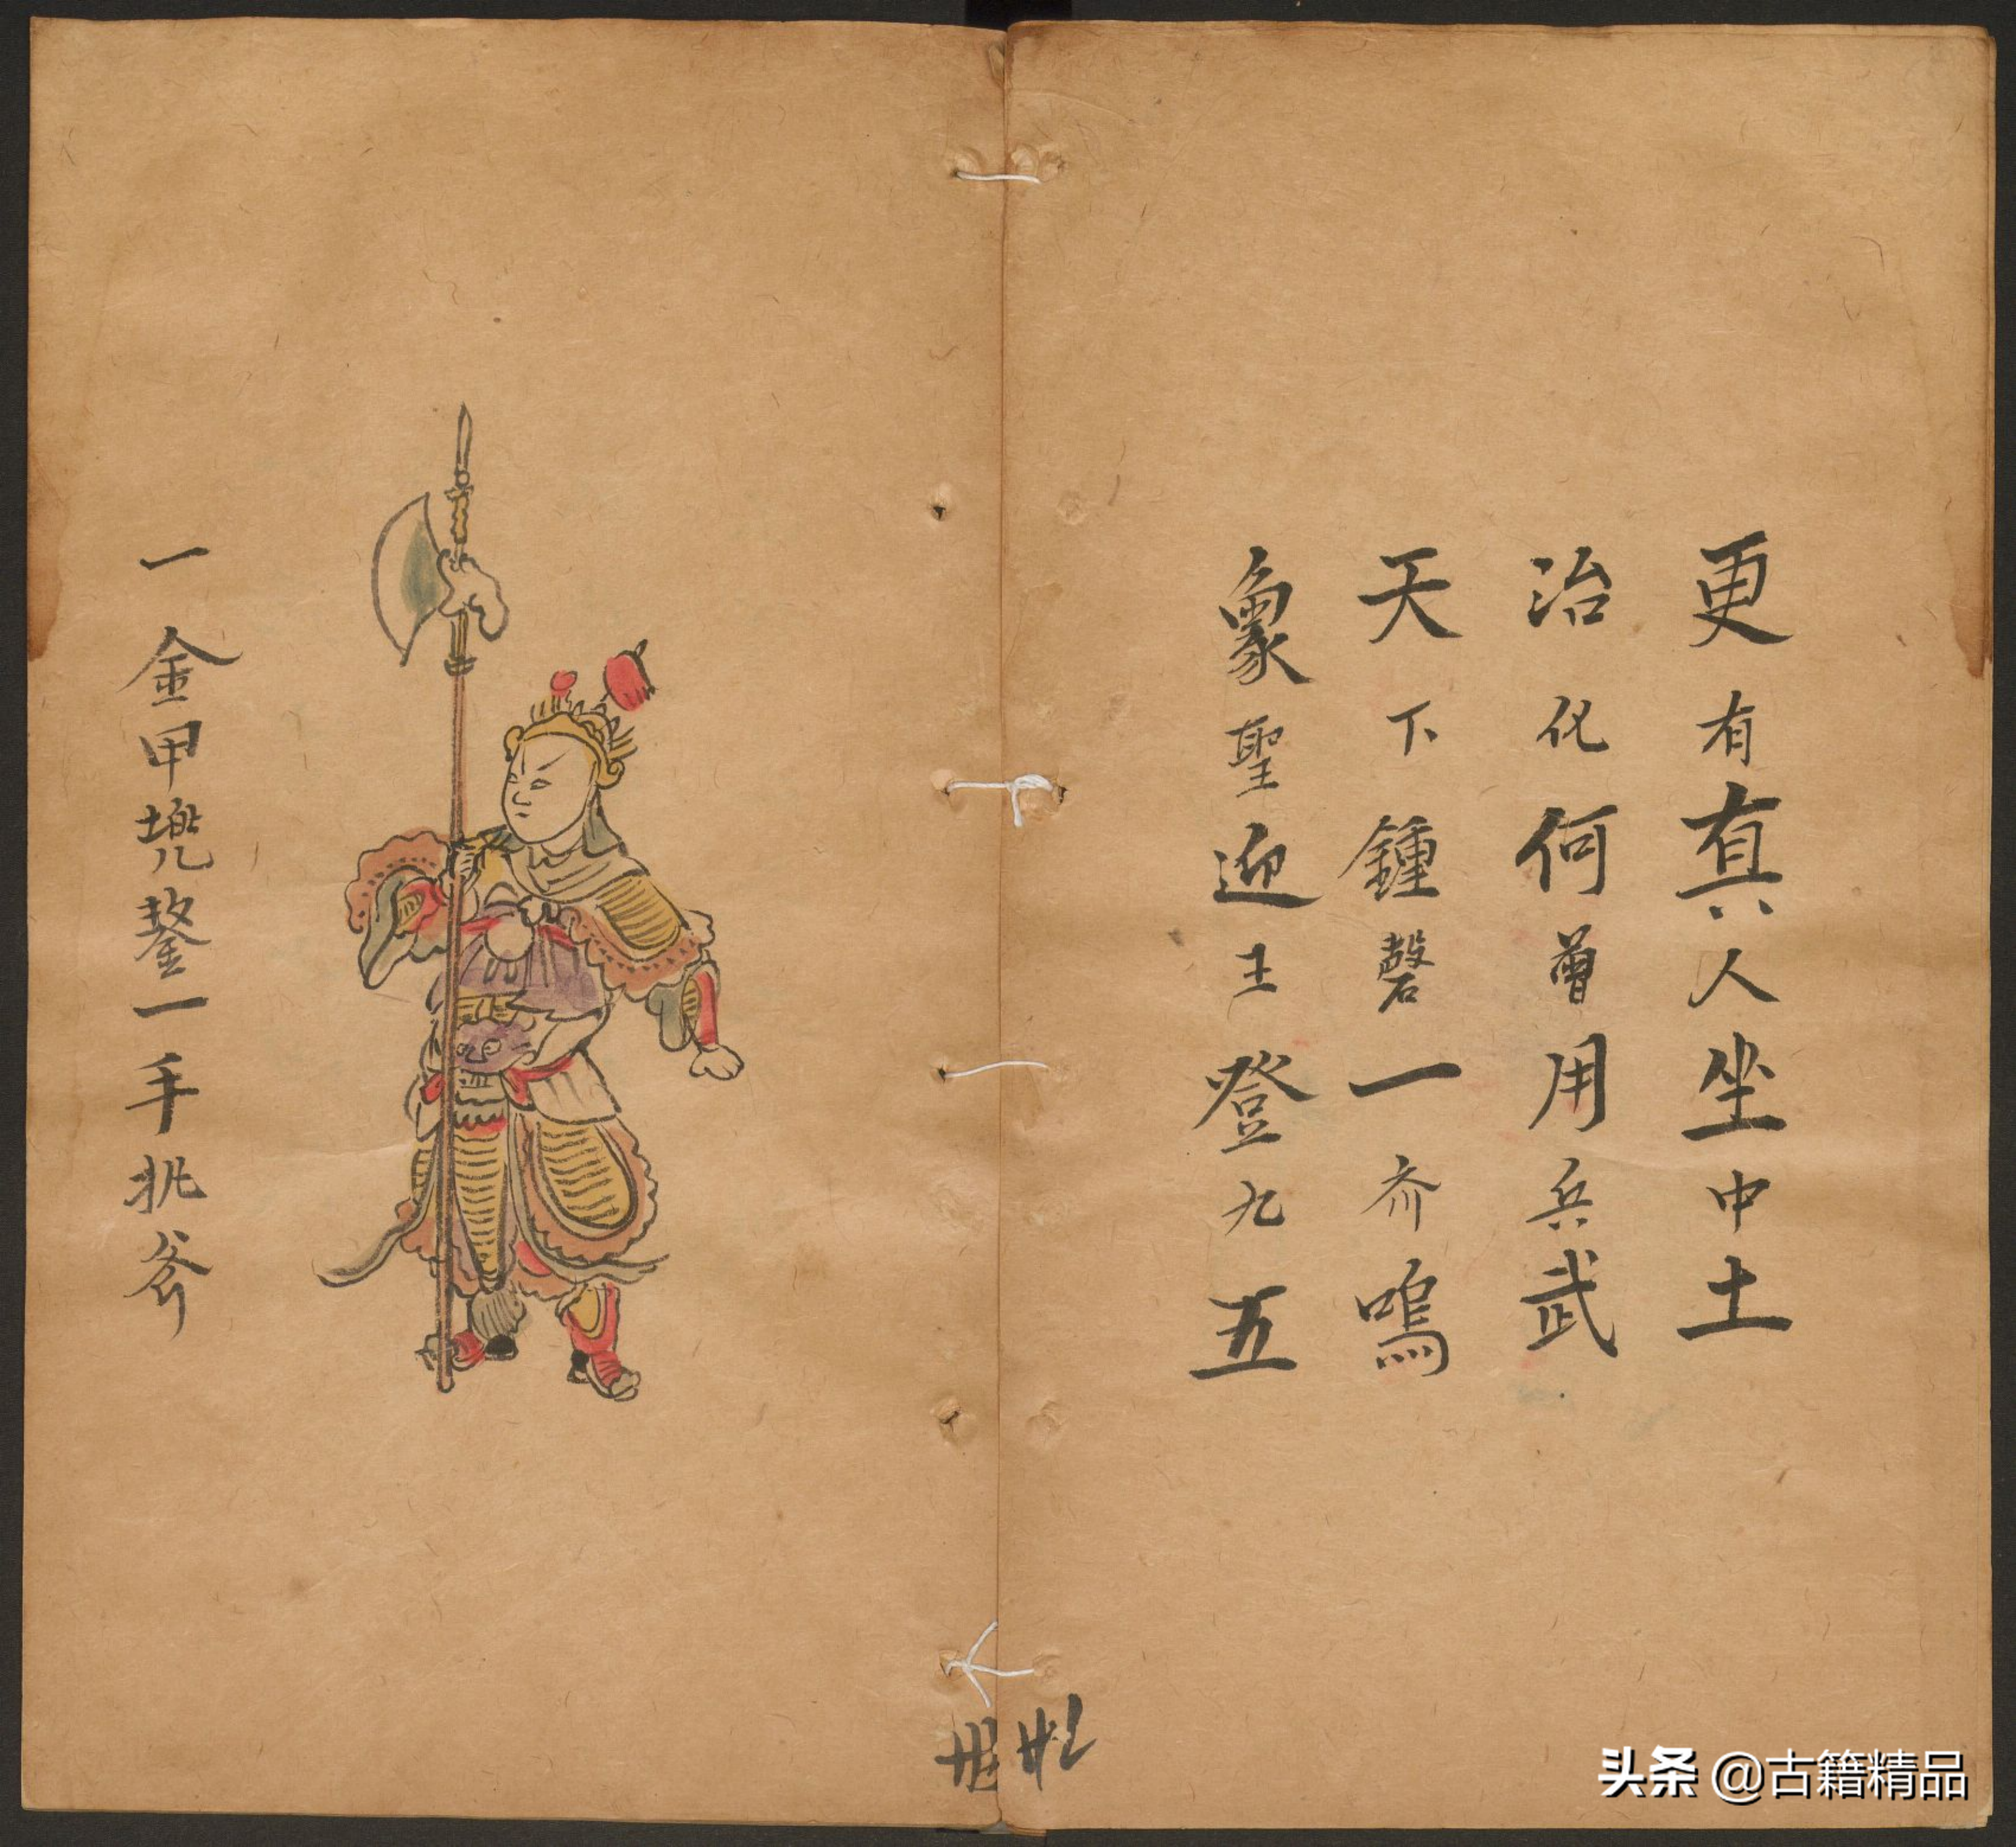 更有真人坐中土
治化何曾用兵武
天下鍾磬一齐鳴
象聖迎王登九五
一金甲兠鍪一手執斧
头条 @古籍精品